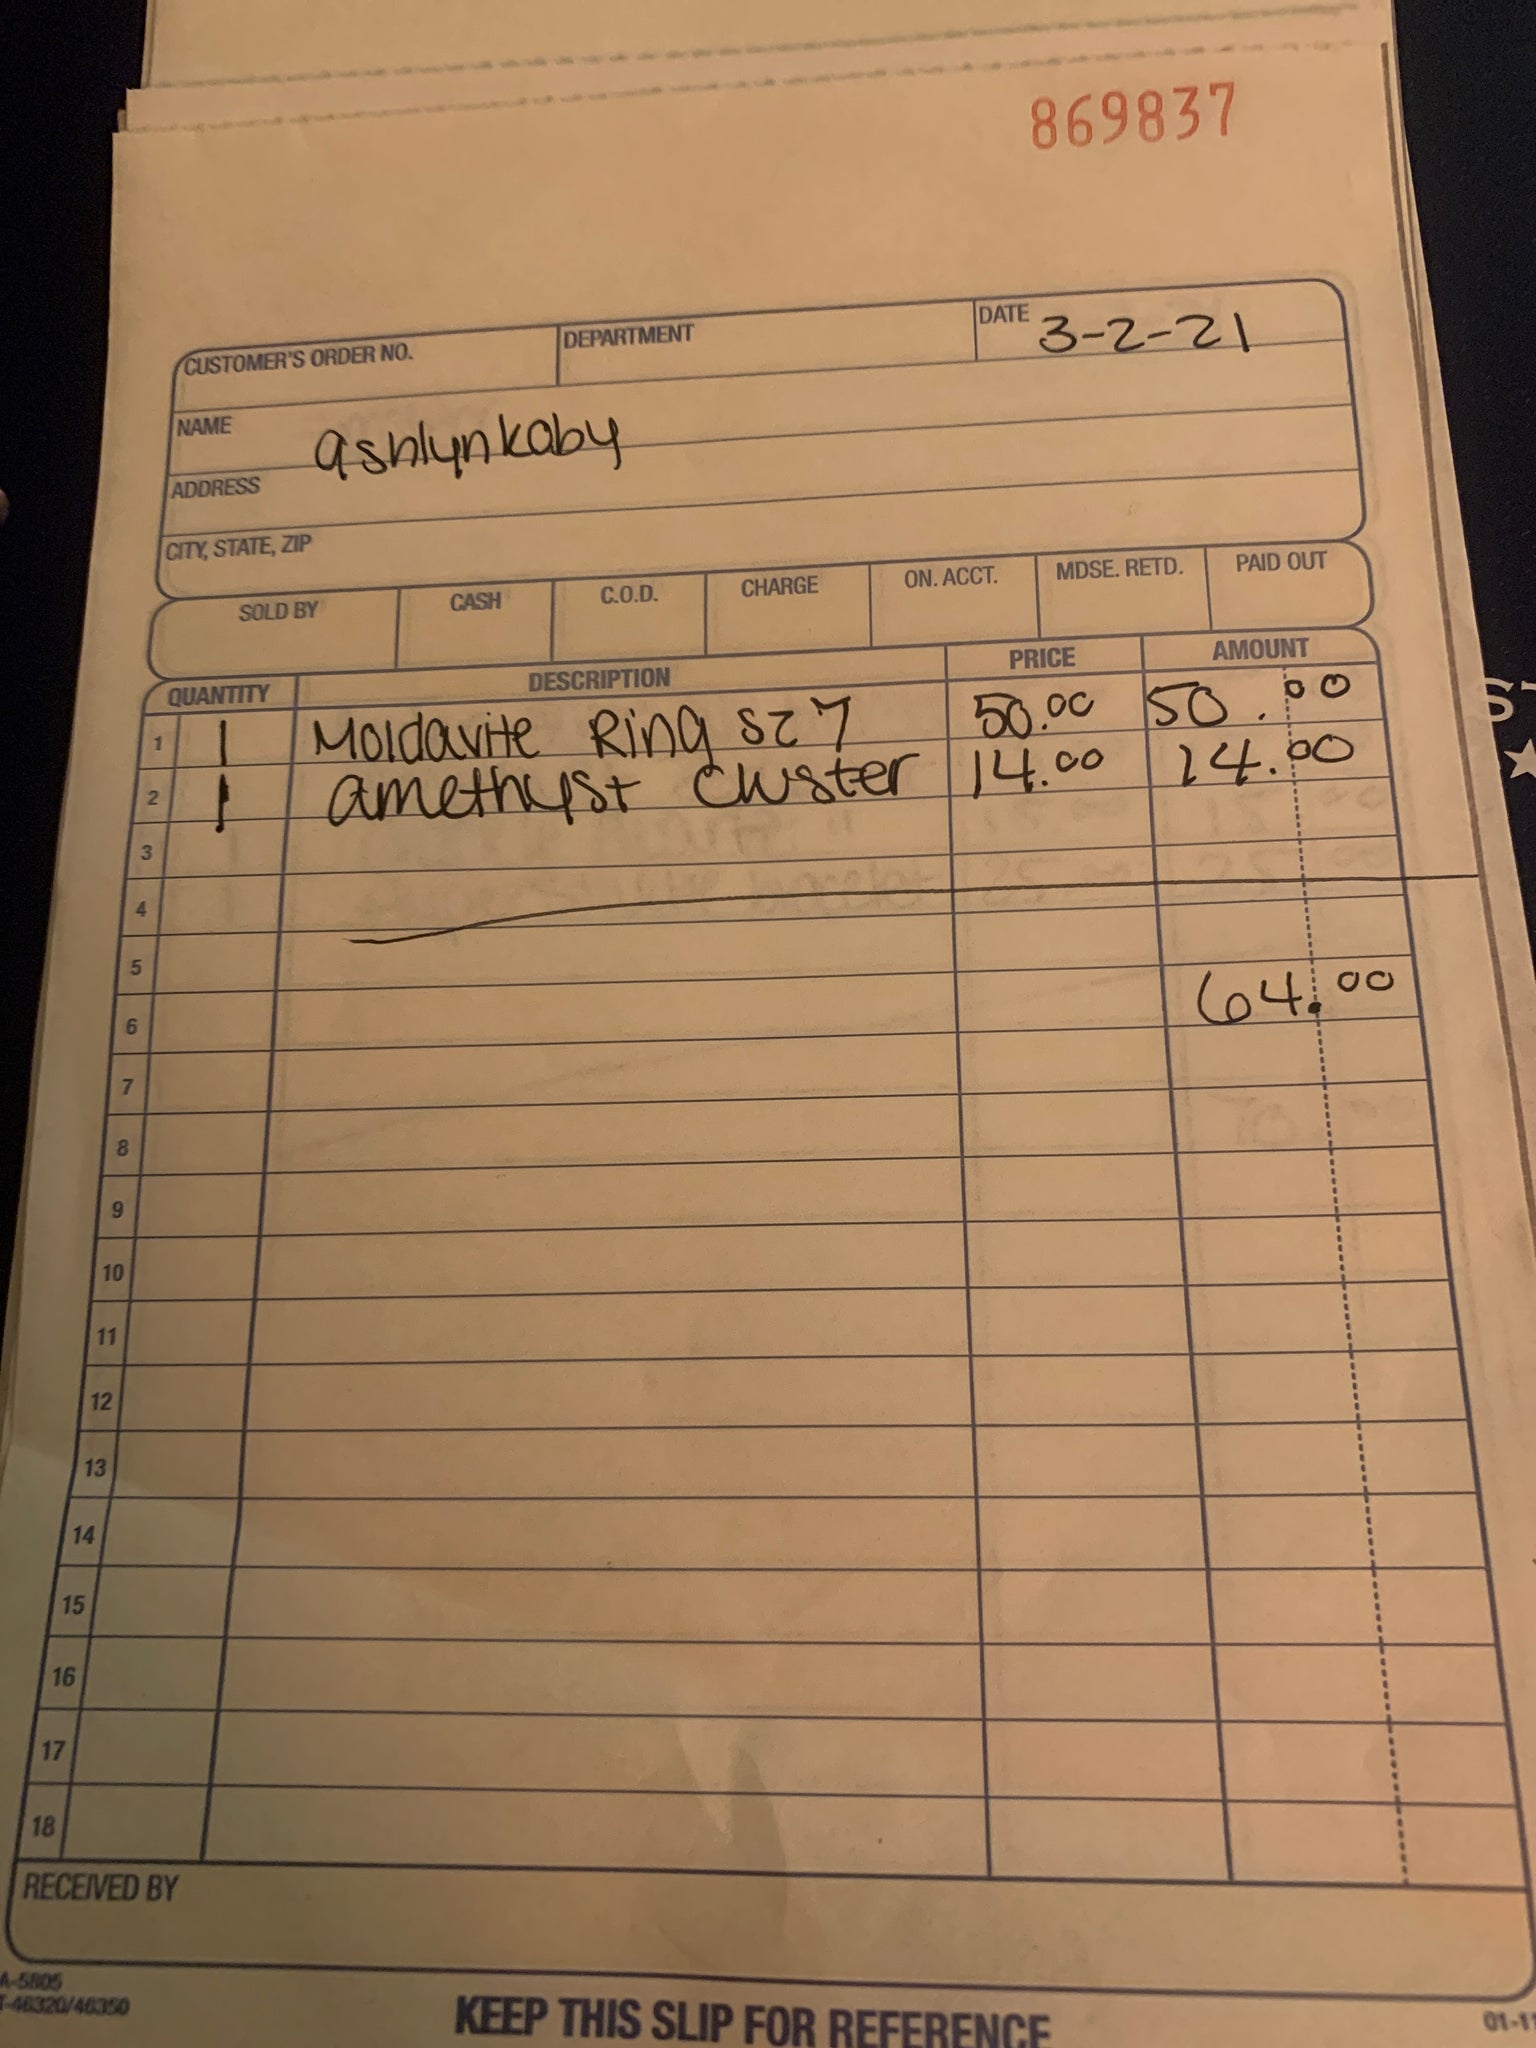 869837
CUSTOMER'S ORDER NO. DEPARTMENT DATE 3-2-21
NAME ashlynkaby
ADDRESS
CITY, STATE, ZIP
SOLD BY CASH C.O.D. CHARGE ON. ACCT. MDSE. RETD. PAID OUT
QUANTITY DESCRIPTION PRICE AMOUNT
1 1 Moldavite Ring SZ 7 50.00 50.00
2 1 amethyst cluster 14.00 14.00
3
4
5
6 64.00
7
8
9
10
11
12
13
14
15
16
17
18
RECEIVED BY
A-5805
T-46320/46350
KEEP THIS SLIP FOR REFERENCE
01-11